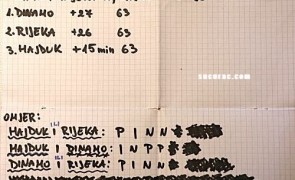 1. DINAMO +27 63
2. RIJEKA +26 63
3. HAJDUK +15 min 63
sucurac.com
OMJER:
HAJDUK I RIJEKA: P I N N
HAJDUK I DINAMO: I N P P
DINAMO I RIJEKA: P I N N